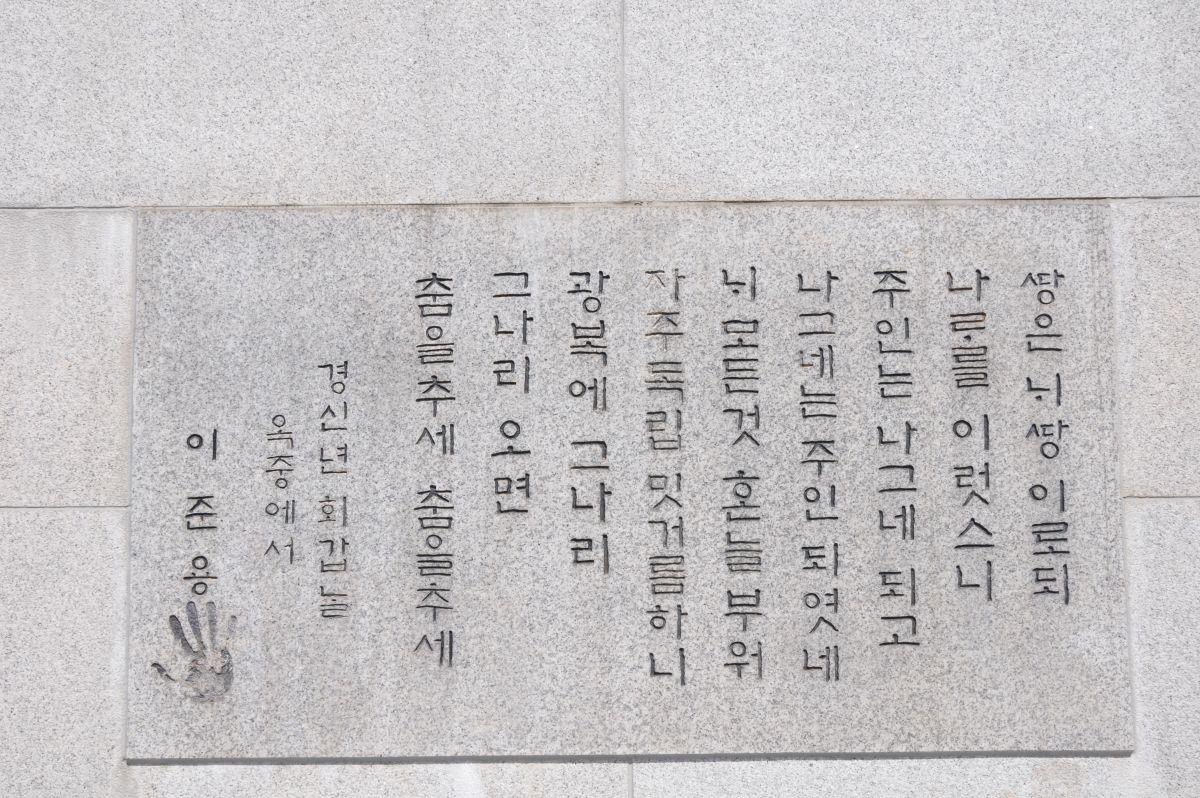 ᄯᅡᆼ은 ᄂᆡ ᄯᅡᆼ 이로되
나ᄅᆞ를 이럿스니
주인는 나그네 되고
나그네는 주인 되엿네
ᄂᆡ 모든것 혼늘 부워
자주독립 밋거름하니
광복에 그나리
그나리 오면
춤을추세 춤을추세
경신년 회갑늘
옥중에서
이 준 용